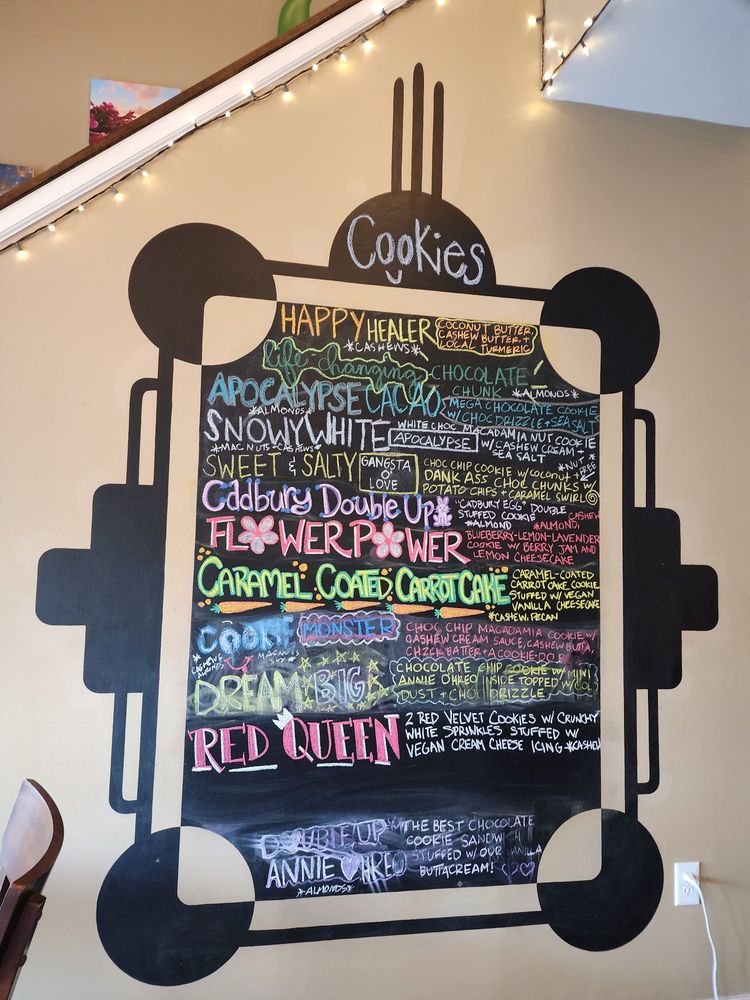 Cookies
HAPPY HEALER COCONUT BUTTER,
CASHEW BUTTER, +
LOCAL TURMERIC
*CASHEWS*
life-changing CHOCOLATE
CHUNK *ALMONDS*
APOCALYPSE CACAO MEGA CHOCOLATE COOKIE
W/CHOC DRIZZLE + SEA SALT
*ALMONDS*
SNOWY WHITE WHITE CHOC MACADAMIA NUT COOKIE
APOCALYPSE W/CASHEW CREAM +
SEA SALT
*MAC NUTS + CASHEWS*
*NUT FREE
SWEET & SALTY GANGSTA
O'
LOVE
CHOC CHIP COOKIE W/COCONUT +
DANK ASS CHOC CHUNKS W/
POTATO CHIPS + CARAMEL SWIRL
Cadbury Double Up "CADBURY EGG" DOUBLE
STUFFED COOKIE CASHEW
*ALMOND *ALMOND,
FLOWER POWER BLUEBERRY-LEMON-LAVENDER
COOKIE W/ BERRY JAM AND
LEMON CHEESECAKE
CARAMEL COATED CARROT CAKE CARAMEL-COATED
CARROT CAKE COOKIE
STUFFED W/ VEGAN
VANILLA CHEESECAKE
*CASHEW, PECAN
COOKIE MONSTER CHOC CHIP MACADAMIA COOKIE W/
CASHEW CREAM SAUCE, CASHEW BUTTA,
BATTER + A COOKIE
*CASHEWS
ALMONDS
DREAM BIG CHOCOLATE CHIP COOKIE W/ MINI
ANNIE OHREO INSIDE TOPPED W/ GOLD
DUST + CHOC DRIZZLE
RED QUEEN 2 RED VELVET COOKIES W/ CRUNCHY
WHITE SPRINKLES STUFFED W/
VEGAN CREAM CHEESE ICING *CASHEW
DOUBLE UP THE BEST CHOCOLATE
COOKIE SANDWICH
ANNIE OHREO STUFFED W/ OUR VANILLA
BUTTACREAM!
*ALMONDS*